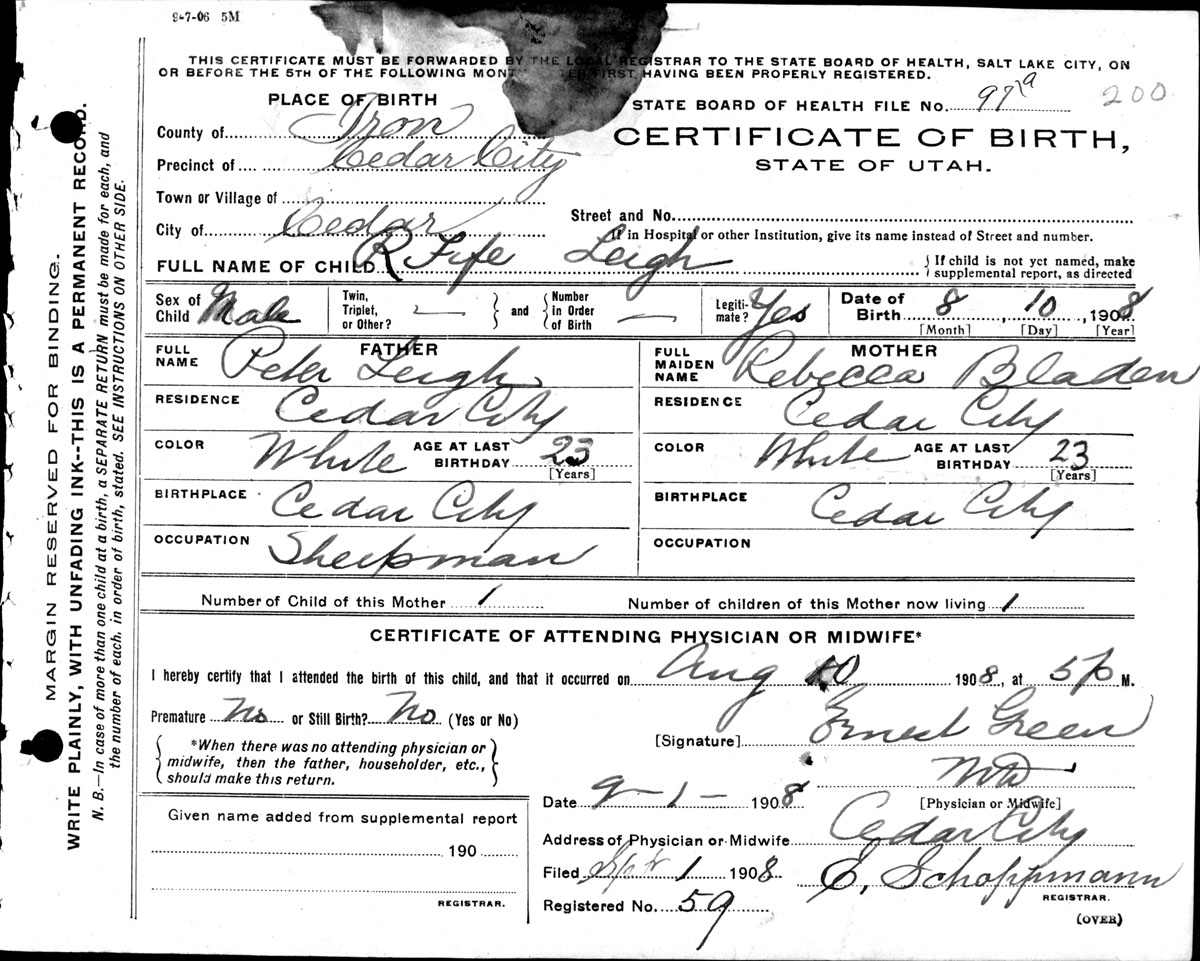 9-7-06 5M
THIS CERTIFICATE MUST BE FORWARDED BY THE LOCAL REGISTRAR TO THE STATE BOARD OF HEALTH, SALT LAKE CITY, ON
OR BEFORE THE 5TH OF THE FOLLOWING MONTH AFTER FIRST HAVING BEEN PROPERLY REGISTERED.
PLACE OF BIRTH
STATE BOARD OF HEALTH FILE No. 97a 200
County of Iron
CERTIFICATE OF BIRTH,
STATE OF UTAH.
Precinct of Cedar City
Town or Village of
City of Cedar
Street and No.
If in Hospital or other Institution, give its name instead of Street and number.
FULL NAME OF CHILD R Fife Leigh
{ If child is not yet named, make
supplemental report, as directed
Sex of Child Male
Twin, Triplet, or Other? —
and
Number in Order of Birth —
Legitimate? Yes
Date of Birth 8, 10, 1908
[Month] [Day] [Year]
FATHER
FULL NAME Peter Leigh
RESIDENCE Cedar City
COLOR White AGE AT LAST BIRTHDAY 23
[Years]
BIRTHPLACE Cedar City
OCCUPATION Sheepman
MOTHER
FULL MAIDEN NAME Rebecca Bladen
RESIDENCE Cedar City
COLOR White AGE AT LAST BIRTHDAY 23
[Years]
BIRTHPLACE Cedar City
OCCUPATION
Number of Child of this Mother 1
Number of children of this Mother now living 1
CERTIFICATE OF ATTENDING PHYSICIAN OR MIDWIFE*
I hereby certify that I attended the birth of this child, and that it occurred on Aug 10 1908, at 5 p M.
Premature No or Still Birth? No (Yes or No)
[Signature] Ernest Green
{ *When there was no attending physician or
midwife, then the father, householder, etc.,
should make this return. }
MD
[Physician or Midwife]
Date 9-1- 1908
Address of Physician or Midwife Cedar City
Filed Sept 1 1908 E, Schoppmann
REGISTRAR.
Registered No. 59
(OVER)
Given name added from supplemental report
190
REGISTRAR.
MARGIN RESERVED FOR BINDING.
WRITE PLAINLY, WITH UNFADING INK--THIS IS A PERMANENT RECORD.
N. B.—In case of more than one child at a birth, a SEPARATE RETURN must be made for each, and
the number of each, in order of birth, stated. SEE INSTRUCTIONS ON OTHER SIDE.